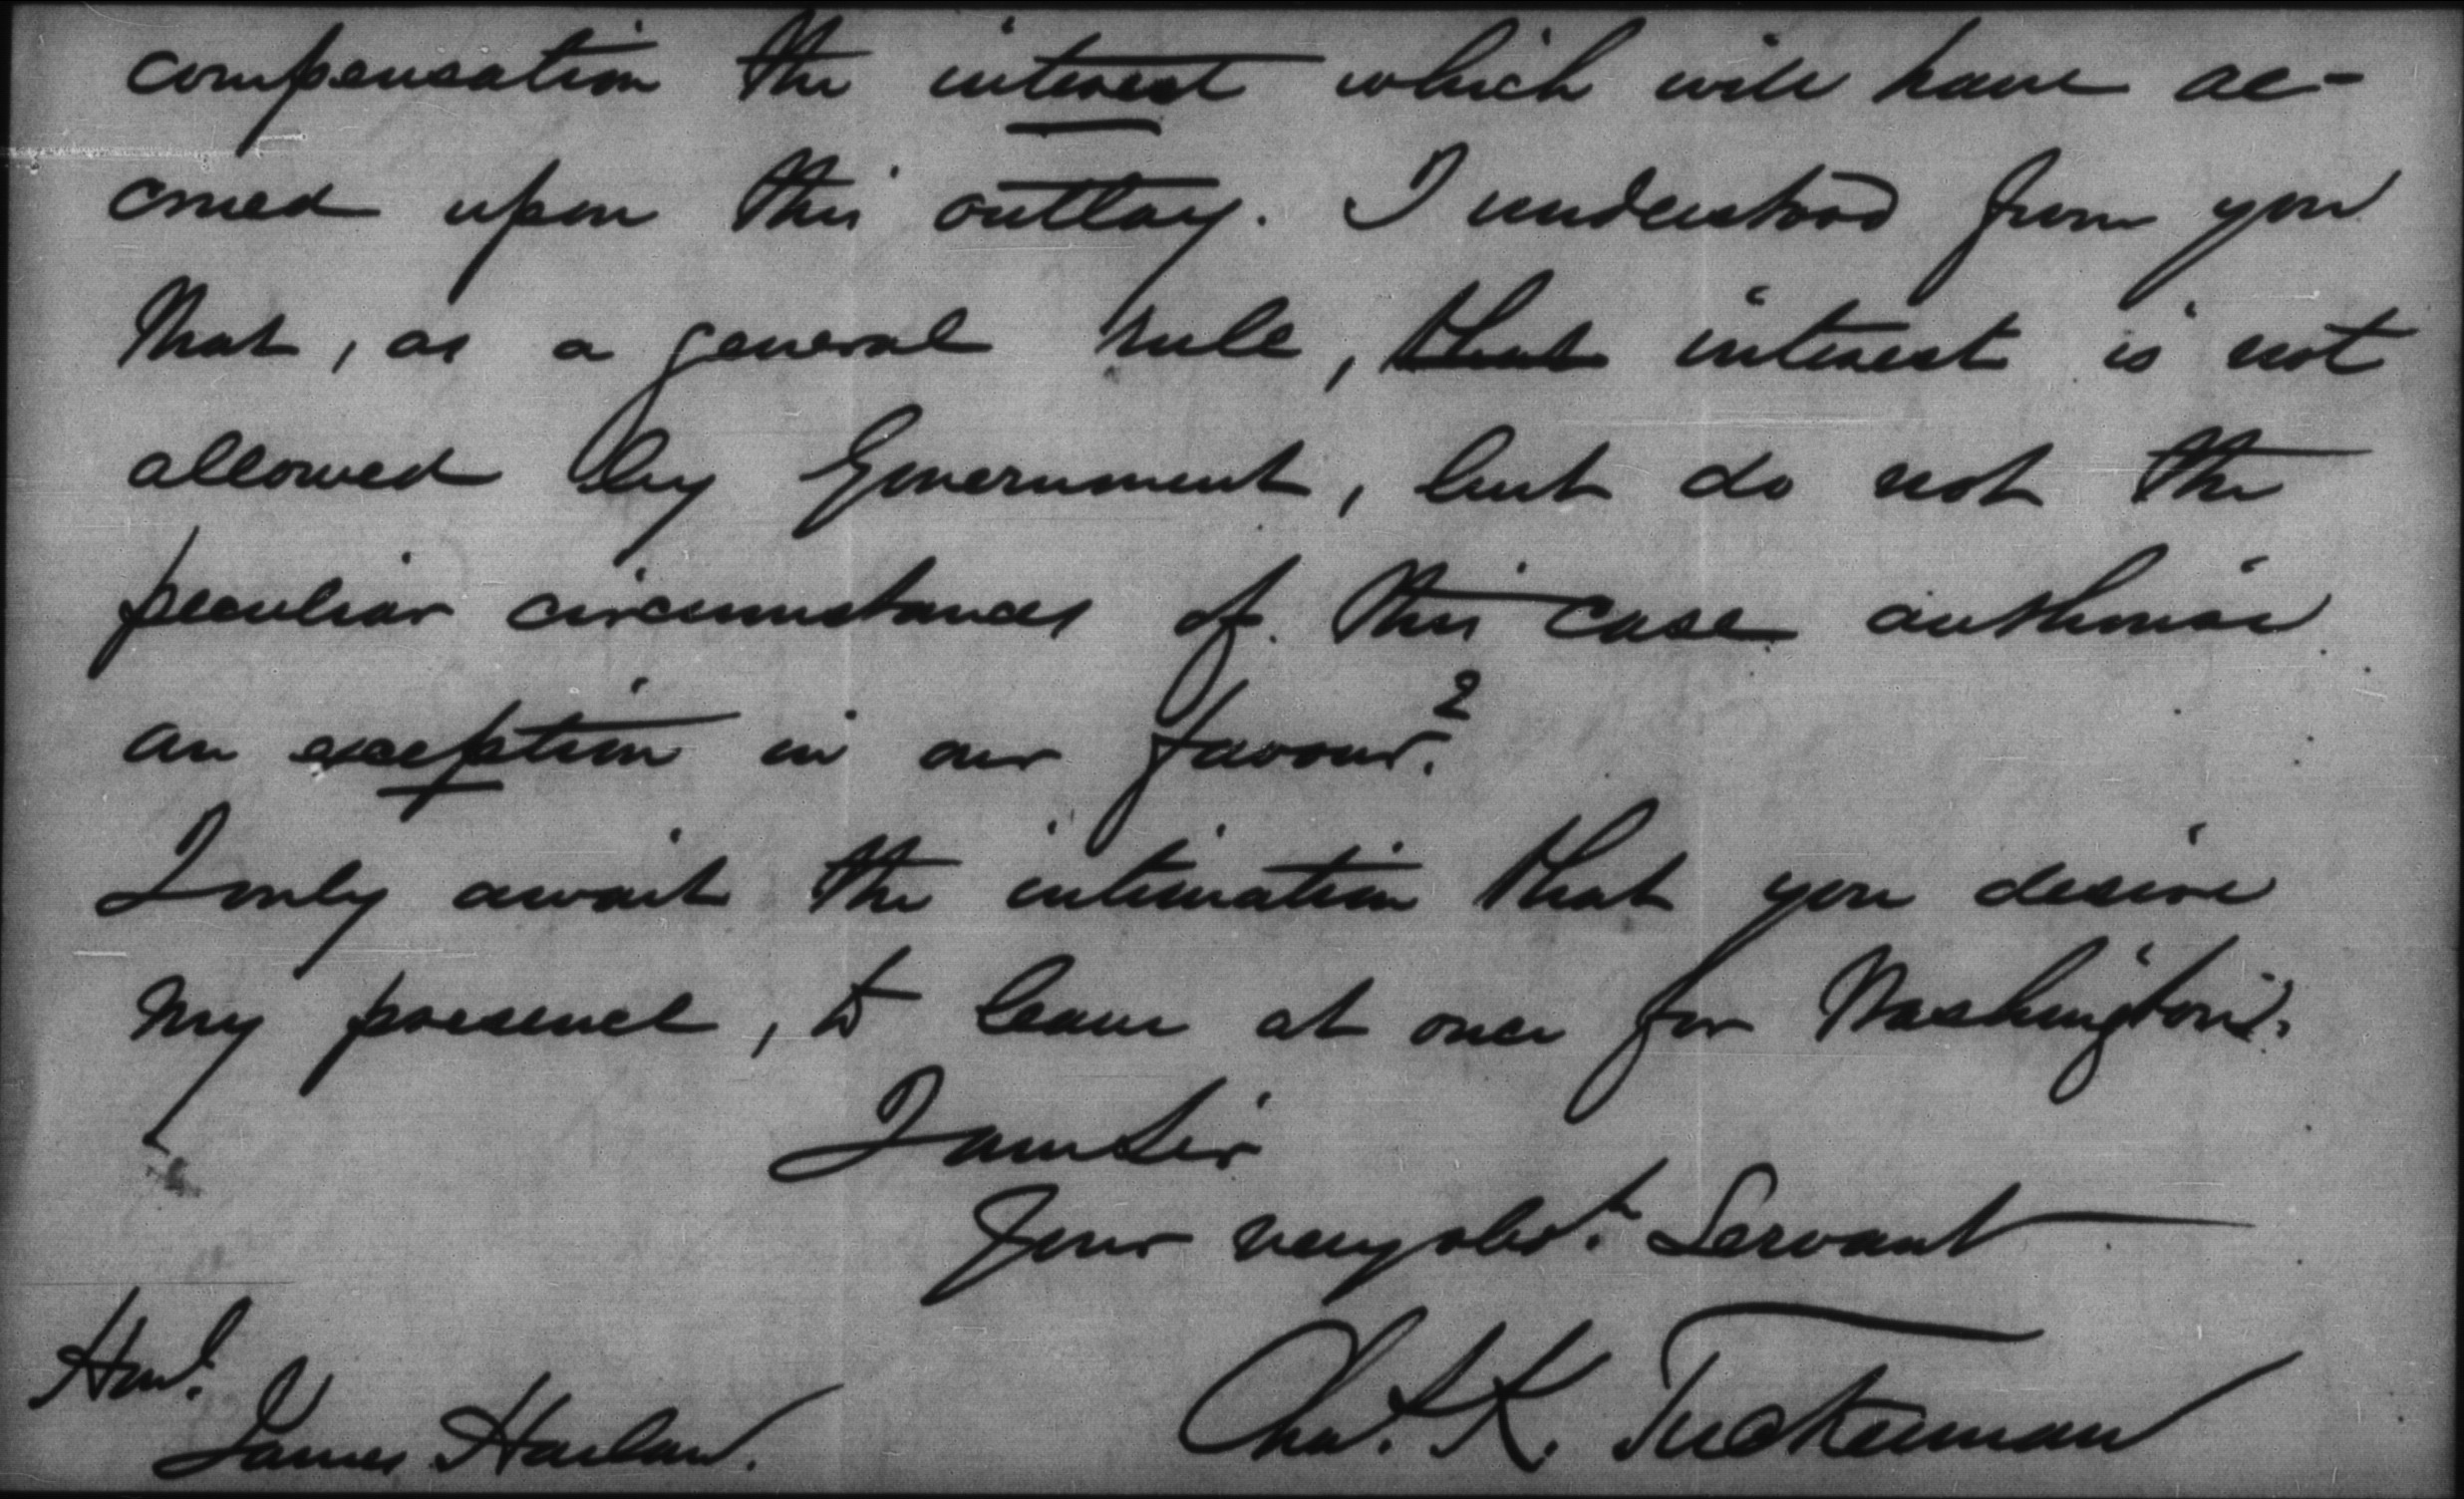 compensation the interest which will have ac-
crued upon this outlay. I understood from you
that, as a general rule, that interest is not
allowed by Government, but do not the
peculiar circumstances of this case authorize
an exception in our favour?
I only await the intimation that you desire
my presence, to leave at once for Washington.
I am Sir
Your very obdt. Servant
Chas. K. Tuckerman
Honl.
James Harlan.